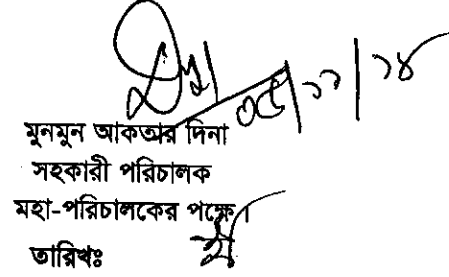 ০৫/১১/১৪
মুনমুন আকতার দিনা
সহকারী পরিচালক
মহা-পরিচালকের পক্ষে।
তারিখঃ